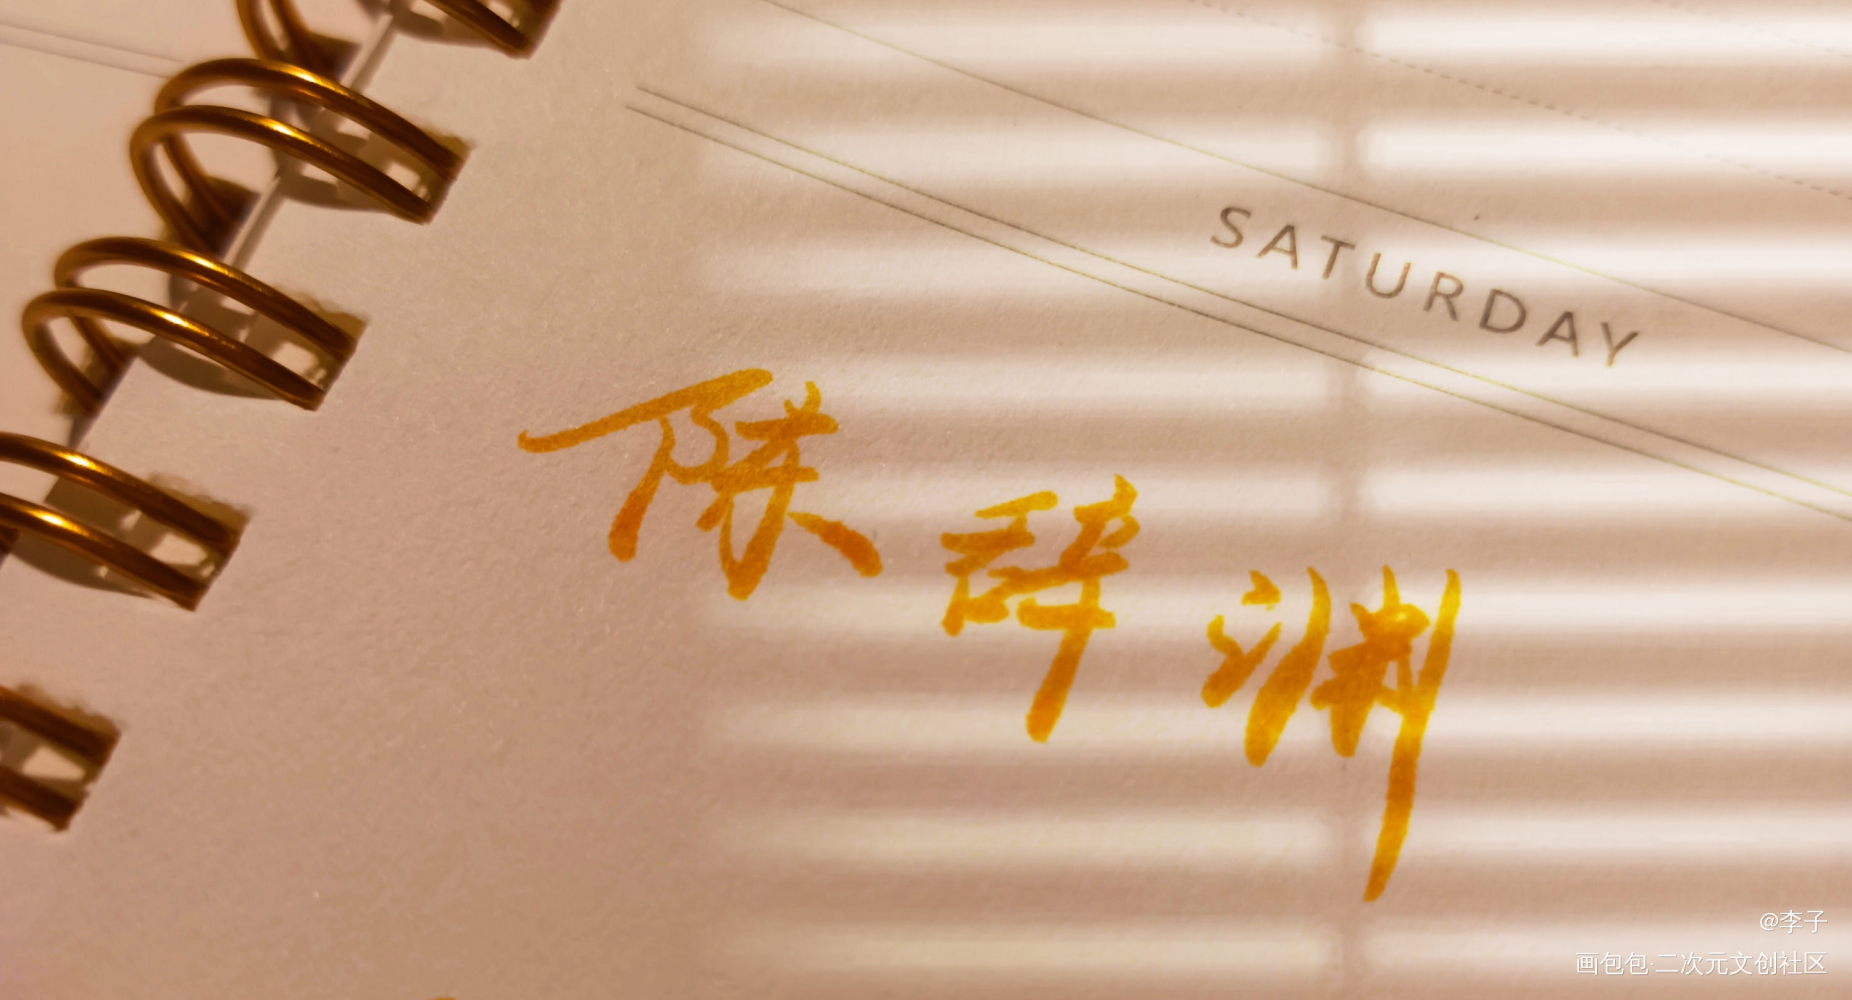 SATURDAY
陈辞渊
@李子
画包包·二次元文创社区